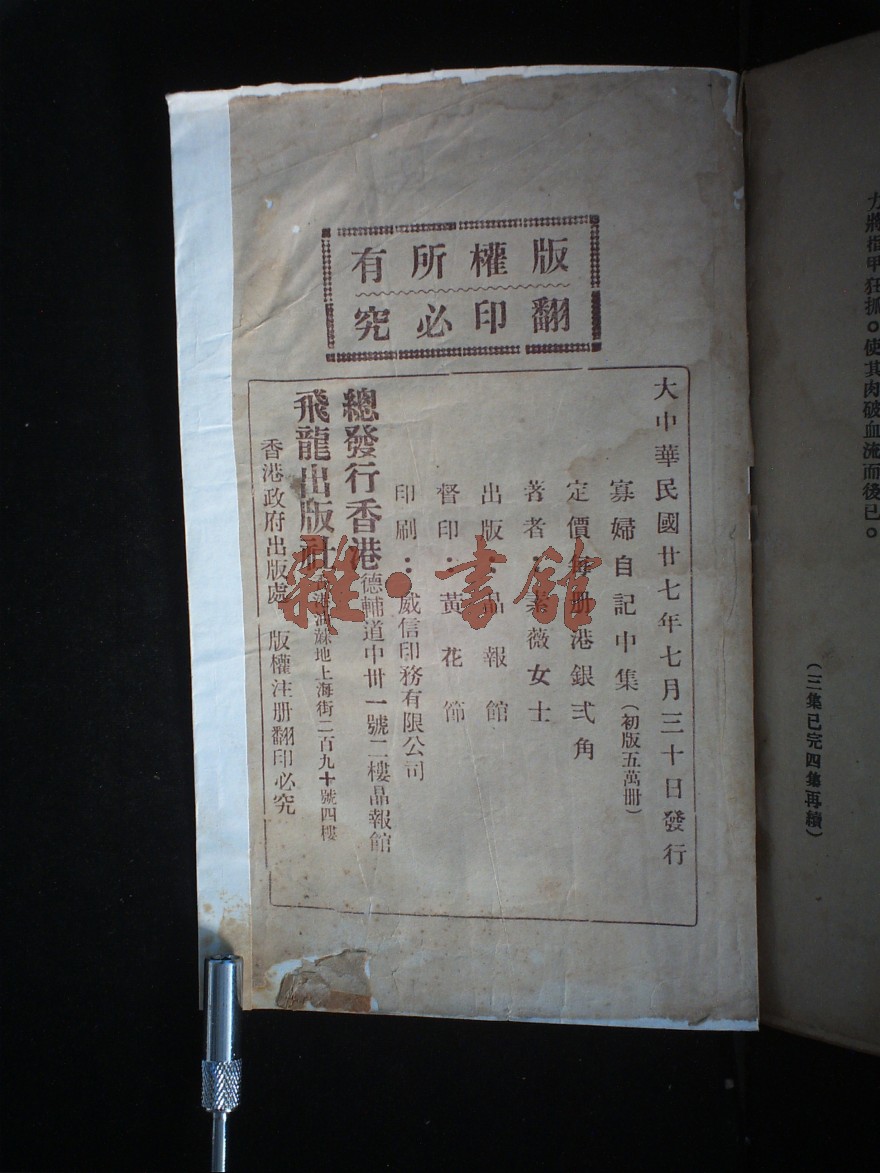 力將指甲狂抓。使其肉破血流而後已。
(三集已完四集再續)
版權所有
翻印必究
大中華民國廿七年七月三十日發行
寡婦自記中集(初版五萬冊)
定價每册港銀弍角
著者:素薇女士
出版:晶報館
督印:黃花節
印刷:威信印務有限公司
總發行香港德輔道中卅一號二樓晶報館
飛龍出版社香港油蔴地上海街二百九十號四樓
香港政府出版處 版權注册翻印必究
雜·書館